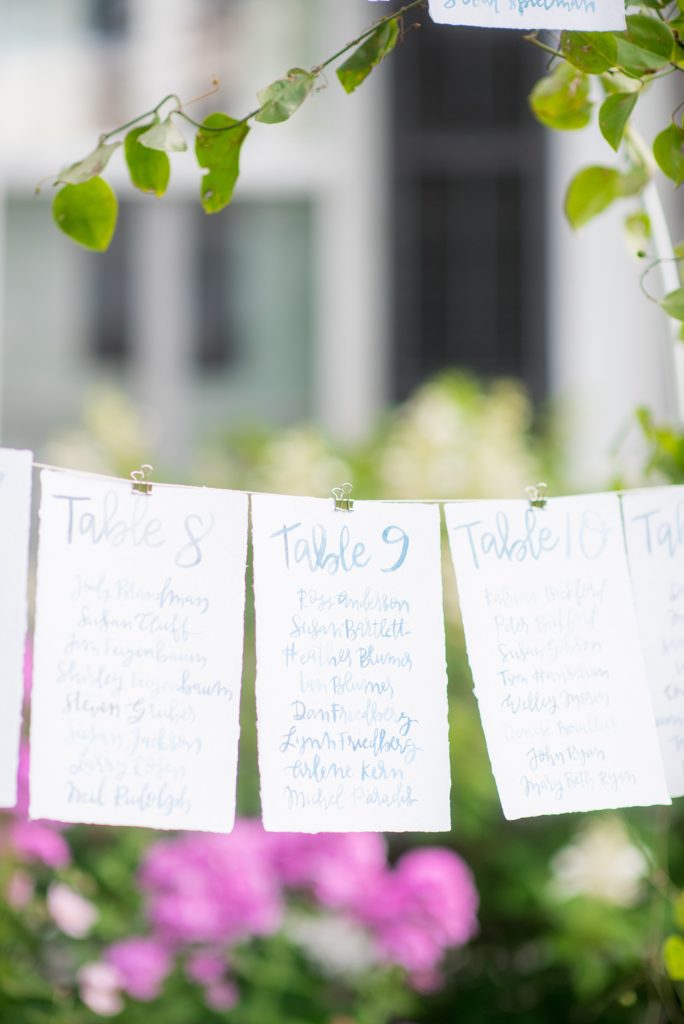 Spielman
Table 8
Jody Brandman
Susan Cluff
Jim Feigenbaum
Shirley Feigenbaum
Steven Gruber
Susan Jackson
Larry Rosen
Neil Rudolph
Table 9
Ross Anderson
Susan Bartlett
Heather Blumer
Ian Blumer
Dan Friedberg
Lynn Friedberg
Arlene Kern
Michel Paradis
Table 10
Katrina Bickford
Peter Bickford
Susan Gibson
Tom Hanrahan
Welley
Denise
John Ryan
Mary Beth Ryan